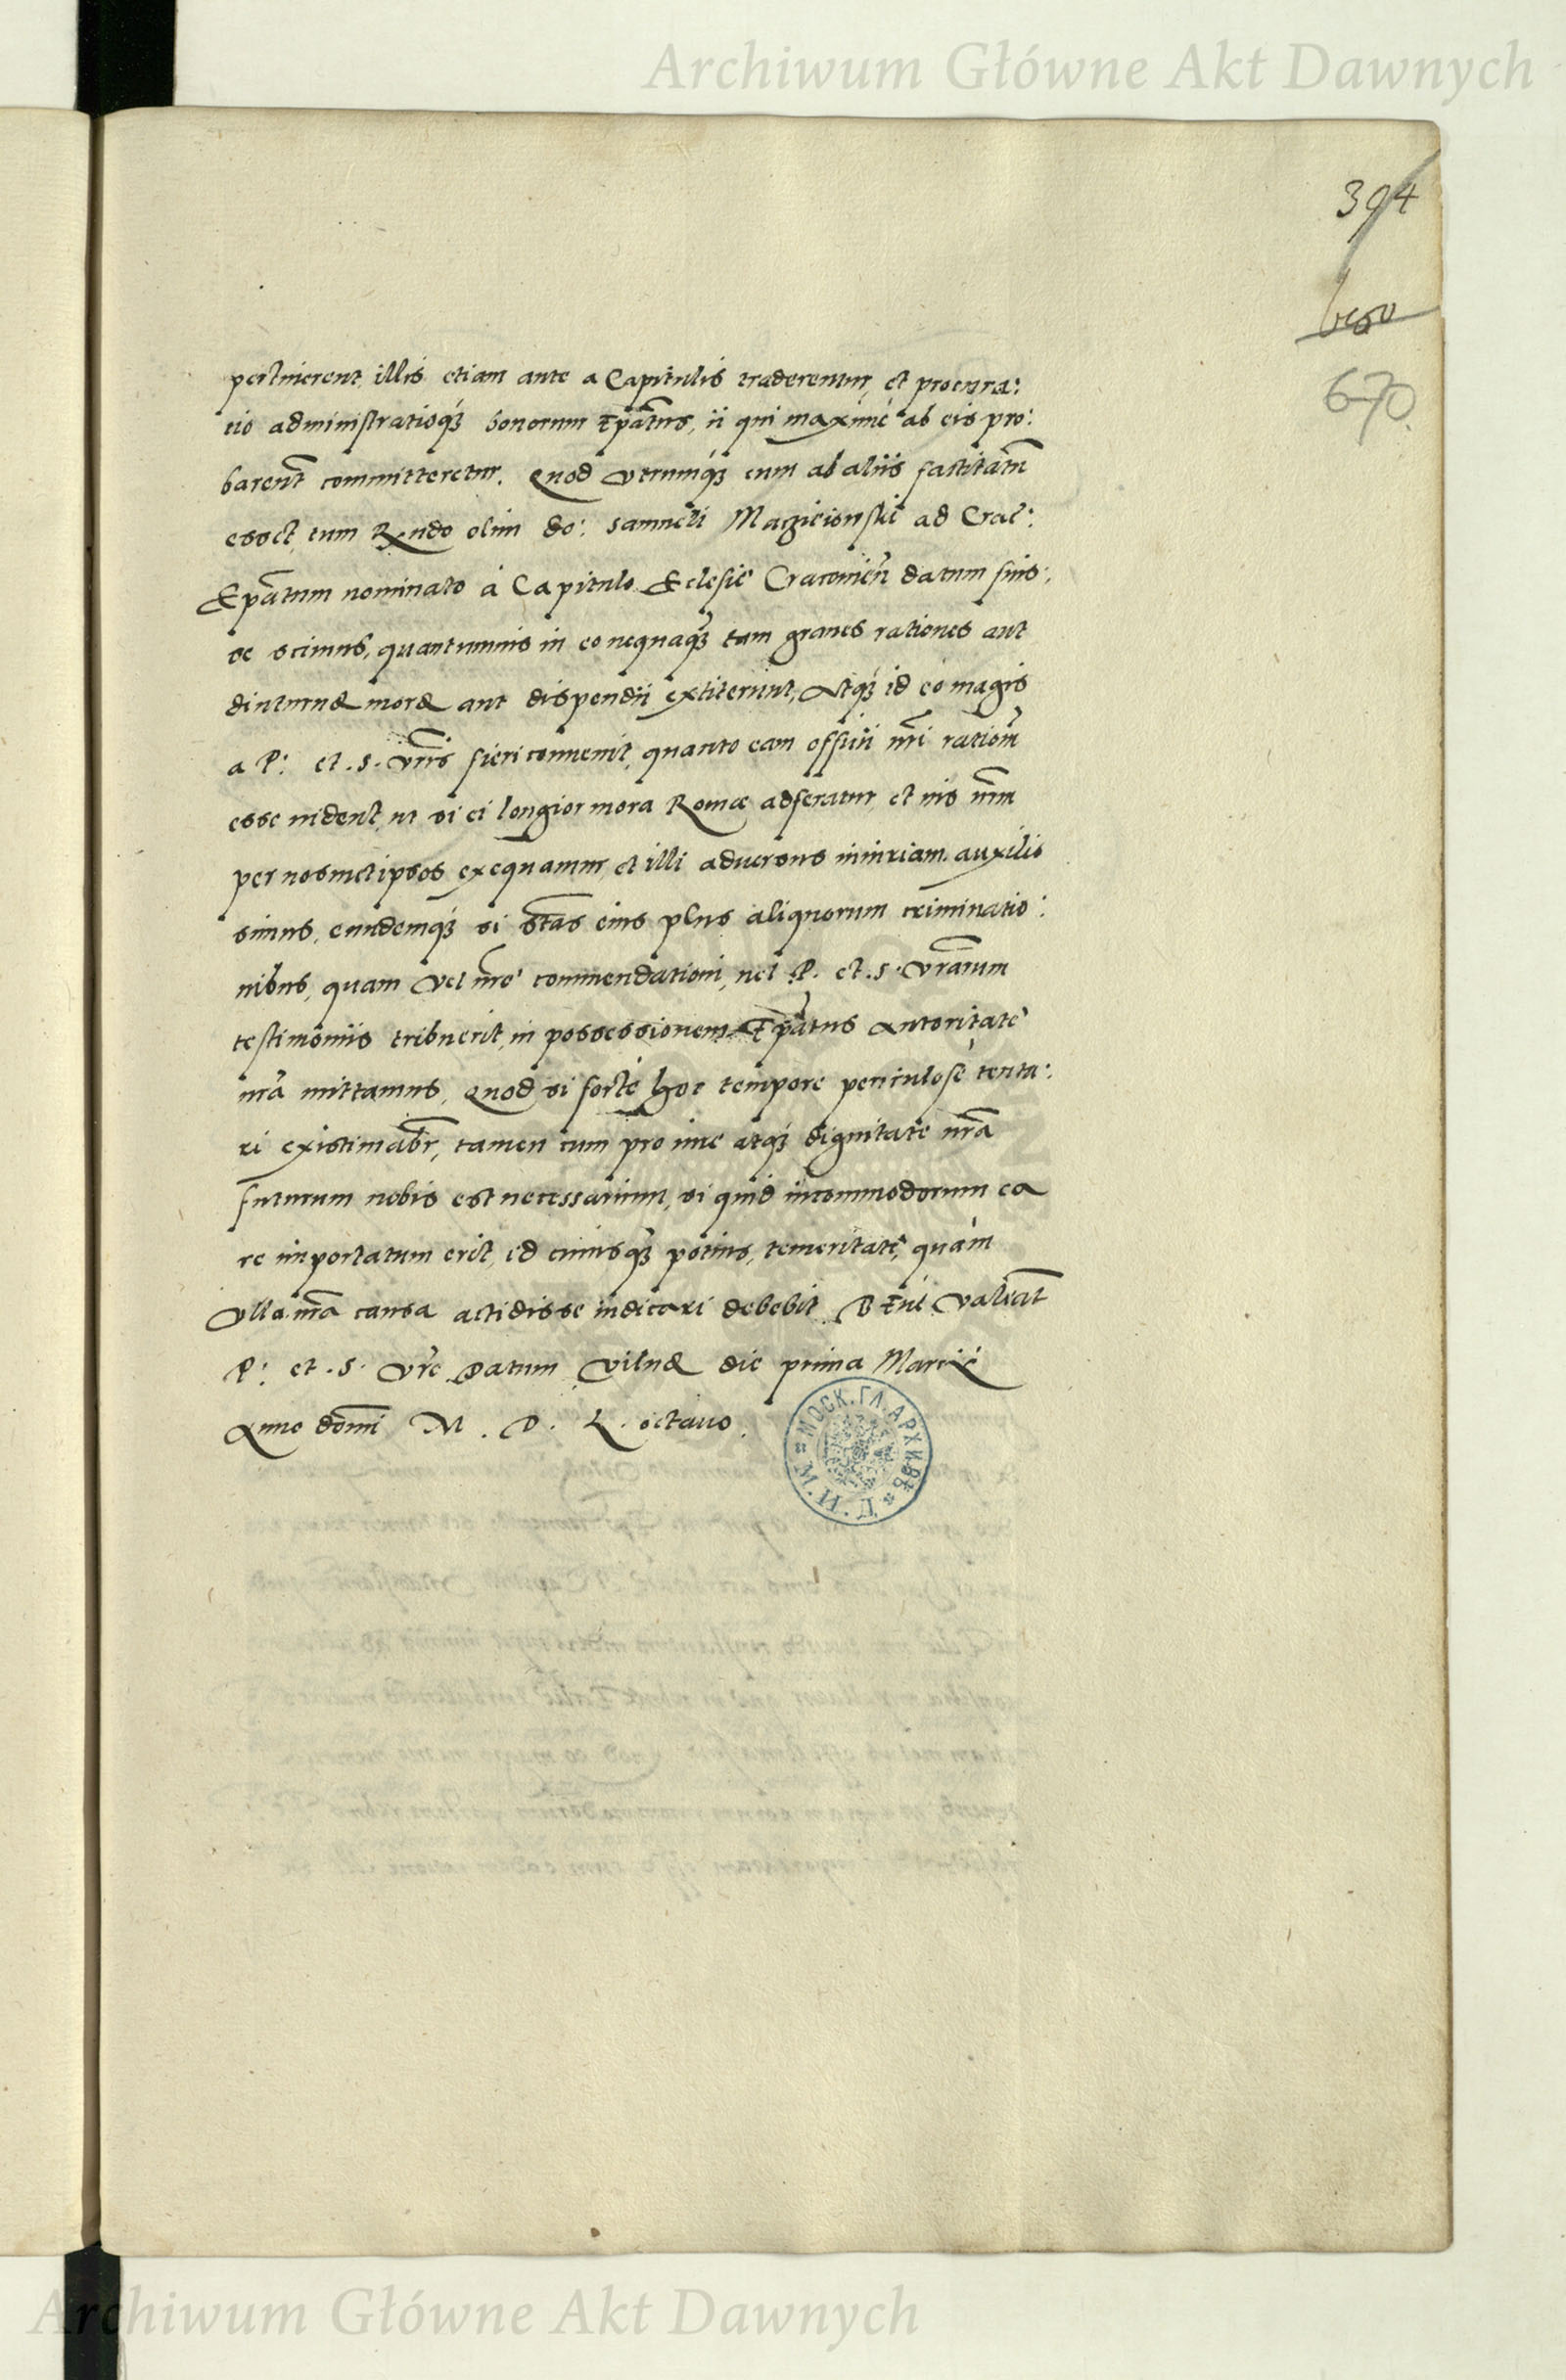 Archiwum Główne Akt Dawnych
394
670
pertinerent, illis etiam ante a Capitulis traderentur, et procura:
tio administratioq́ꝫ bonorum Ep̃atus, ii qui maximè ab eis pro:
barent̃ committeretur. Quod vtrumq́ꝫ cum ab aliis factitatũ
esset, tum Rẽndo olim do: Samueli Maczieiouskie ad Crac:
Ep̃atum nominato à Capitulo Eclesiẻ Cracouień datum fuis:
se scimus, quantumuis in eo nequaq̃ꝫ tam graues rationes aut
diuturnæ moræ aut dispendii extiterint, Atq́ꝫ id eò magis
a P: et .S. vr̃is fieri conuenit, quanto eam officii nr̃i rationẽ
esse uident, ut si ei longior mora Romæ adferatur, et ius nr̃m
per nosmetipsos exequamur, et illi aduersus iniuriam auxilio
simus, eundemq́ꝫ si Stas̃ eius plus aliquorum criminatio:
nibus, quam vel nr̃e commendationi, uel P. et .S. vr̃arum
testimoniis tribuerit, in possessionem Ep̃atus Autoritate
nr̃a mittamus. Quod si fortè hoc tempore periculosè tenta:
ri existimabr̃, tamen cum pro iure atq́ꝫ dignitate nr̃a
futurum nobis est necessarium, si quid incommodorum ea
re importatum erit, id cuiusq̃ꝫ potius, temeritate, quàm
vlla nr̃a causa accidisse iudicari debebit. Bene Valeant
P: et .S. vr̃e Datum Vilnæ die prima Marcii
Anno domĩ M. D. L. octauo.
МОСК. ГЛ. АРХИВЪ
М. И. Д.
Archiwum Główne Akt Dawnych